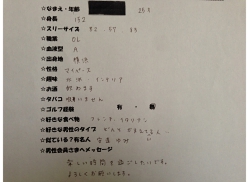 ☆なまえ・年齢 25才
☆身長 152
☆スリーサイズ 82 57 83
☆職業 OL
☆血液型 A
☆出身地 横浜
☆性格 マイペース
☆趣味 インテリア
☆お酒 飲めます
☆タバコ 吸いません
☆ゴルフ経験 有・無
☆好きな食べ物
☆好きな男性のタイプ
☆似ている?有名人
☆男性会員さまへメッセージ
楽しい時間を過ごしたいです。
よろしくお願いします。